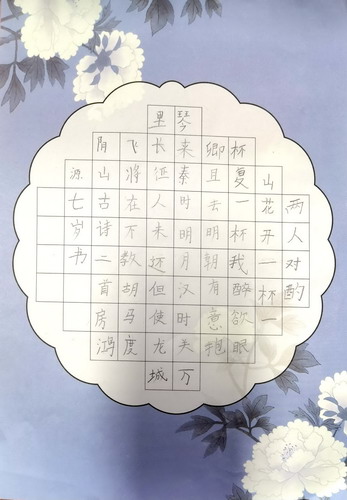 两人对酌
山花开一杯一
杯复一杯我醉欲眠
卿且去明朝有意抱
琴来秦时明月汉时关万
里长征人未还但使龙城
飞将在不教胡马度
阴山古诗二首房鸿
源七岁书